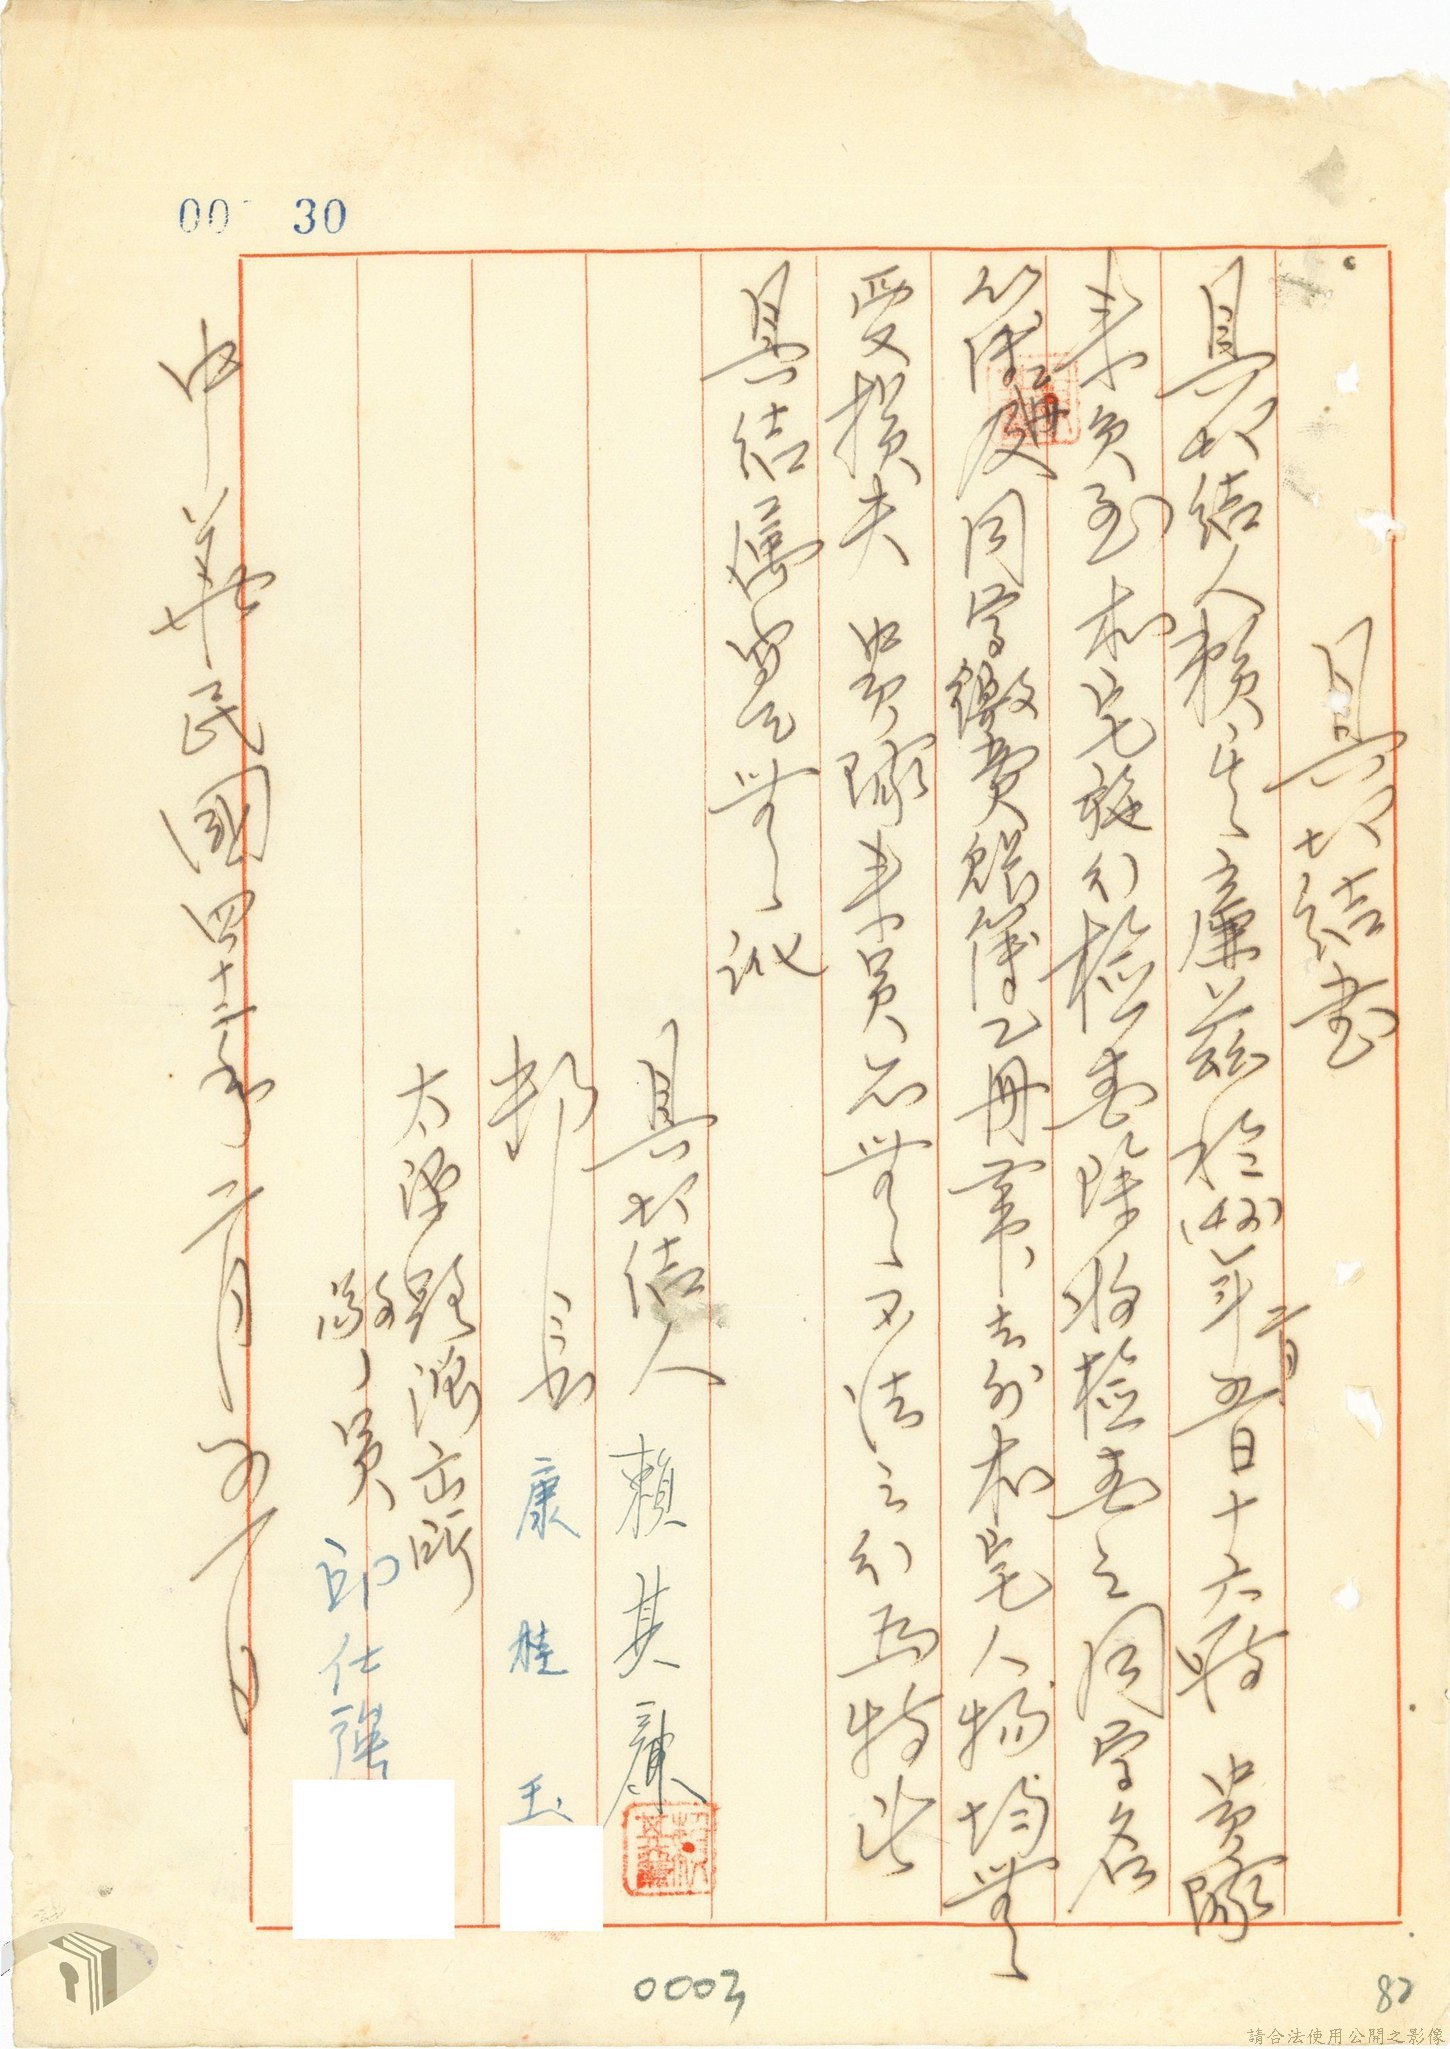 00 30
具切結書
具切結人賴其廉茲於四二年二月五日十六時 貴隊
來員到本宅施行檢查除收檢查之同學名
簿及同學繳費賬簿乙冊帶去外本宅人物均無
受損失 貴隊來員亦無不法之行為特此
具結屬實無訛
具切結人 賴其廉
鄰長 康桂玉
太平 派出所
員 邱仕強
中華民國四十二年二月五日
0003
82
請合法使用公開之影像